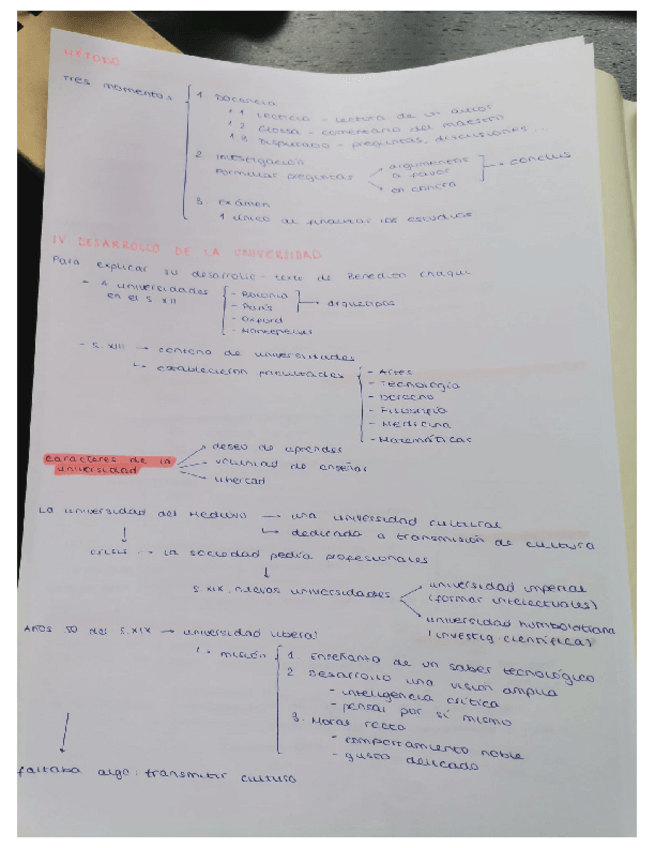 MÉTODO
Tres momentos
1. Docencia
1.1 Lecticio - lectura de un autor
1.2 Glossa - comentario del maestro
1.3 Disputatio - preguntas, discusiones...
2. Investigación
Formular preguntas
argumentos a favor
en contra
conclus
3. Exámen
1 único al finalizar los estudios
IV DESARROLLO DE LA UNIVERSIDAD
Para explicar su desarrollo - texto de Benedito Chaqui
- 4 universidades
en el S. XII
- Bolonia
- París
- Oxford
- Montpellier
arquetipos
- S. XIII → centena de universidades
↳ establecieron facultades
- Artes
- Tecnología
- Derecho
- Filosofía
- Medicina
- Matemáticas
Caracteres de la
universidad
deseo de aprender
voluntad de enseñar
libertad
La universidad del Medievo — una universidad cultural
↳ dedicada a transmisión de cultura
crisis → la sociedad pedía profesionales
S. XIX. nuevas universidades
universidad imperial
(formar intelectuales)
universidad humboldtiana
(investig. científica)
Años 50 del S. XIX → universidad liberal
misión
1. Enseñanza de un saber tecnológico
2 Desarrollo una visión amplia
- inteligencia crítica
- pensar por sí mismo
3. Moral recta
- comportamiento noble
- gusto delicado
faltaba algo: transmitir cultura